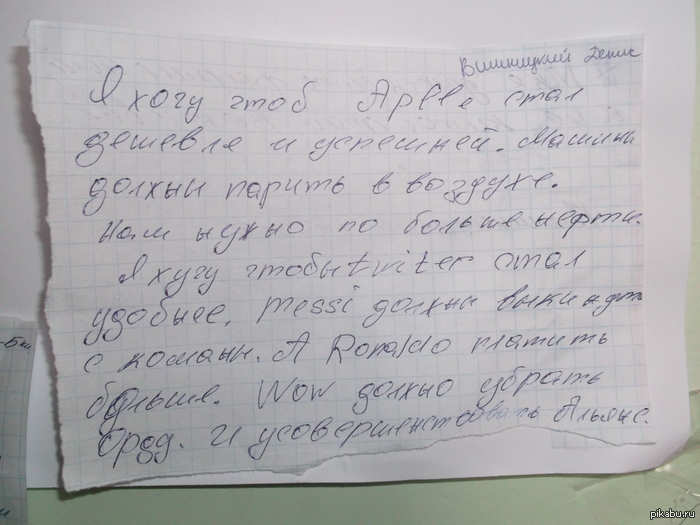 Вишницкий Денис
Я хочу чтоб Apple стал
дешевле и успешней. Машины
должны парить в воздухе.
Нам нужно по больше нефти.
Я хучу чтобы twiter стал
удобнее, messi должны выкинуть
с команы. А Ronaldo платить
больше. Wow должно убрать
Орду. И усовершенствовать Альянс.
-5 км
pikabu.ru